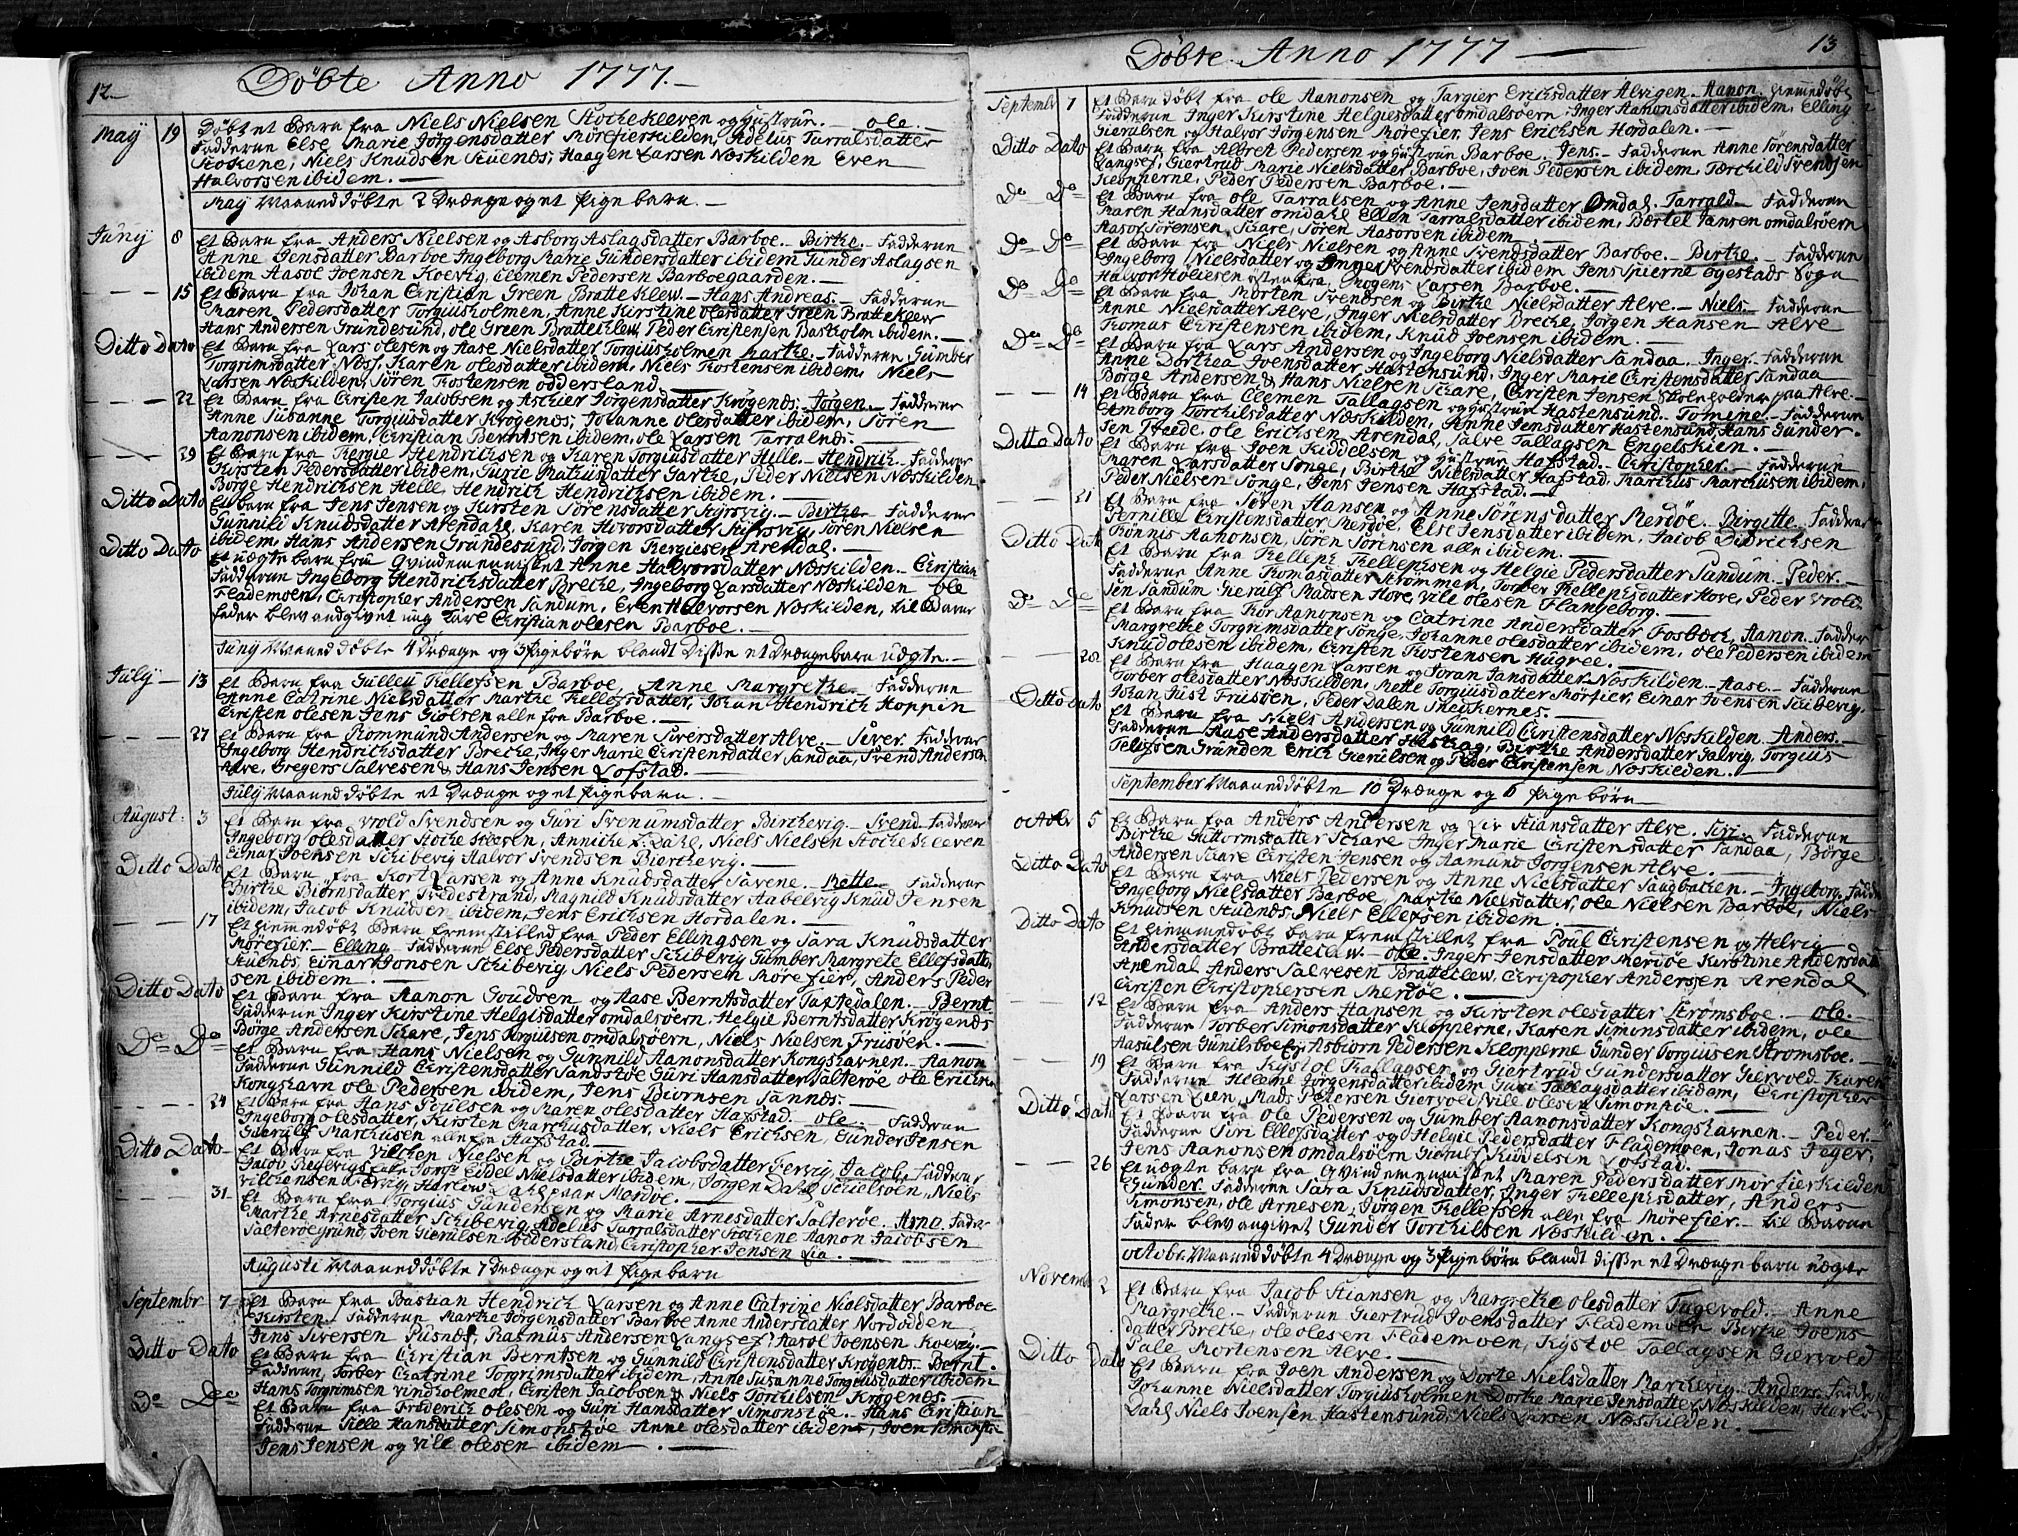 12.
Döbte Anno 1777.
May 19 Döbt et Barn fra Niels Nielsen Stochekleven og Hustrue. ole.
Fadderne Else Marie Jörgensdatter Mörefierskilden, Adelus Tarralsdatter
Stokene, Niels Knudsen Stuenes, Haagen Larsen Næskilden Even
Halvorsen ibidem.
May Maaned döbte 2 Drænge og et Pigebarn.
Juny 8 Et Barn fra Anders Nielsen og Asborg Aslagsdatter Barboe. Birthe. Fadderne
Anne Jensdatter Barboe Ingeborg Marie Gundersdatter ibidem Gunder Aslagsen
ibidem Aasol Joensen Koevig, Clemen Pedersen Barboegaarden.
15 Et Barn fra Johan Christian Green Bratteklew. Hans Andreas. Fadderne
Maren Pedersdatter Torgiusholmen, Anne Kirstine olesdatter Green Bratteklew
Hans Andersen Grundesund, ole Green Bratteklew, Peder Christensen Baskolm ibidem.
Ditto Dato Et Barn fra Lars olesen og Aase Nielsdatter Torgiusholmen Marthe. Fadderne Gumber
Torgrimsdatter Næss, Karen olesdatter ibidem, Niels Tostensen ibidem, Niels
Larsen Næskilden, Sören Tostensen oddersland
22 Et Barn fra Christen Jacobsen og Aschier Jörgensdatter Krögenes. Jörgen. Fadderne
Anne Susanne Torgiusdatter Krögenes, Johanne olesdatter ibidem, Sören
Aanonsen ibidem, Christian Berntsen ibidem, ole Larsen Tarralnes.
29 Et Barn fra Tergie Hendrichsen og Karen Torgiusdatter Hille. Hendrich. Fadderne
Kirsten Pedersdatter ibidem, Gurie Mathiasdatter Garthe, Peder Nielsen Næskilden
Börge Hendrichsen Helle, Hendrich Hendrichsen ibidem.
Ditto Dato Et barn fra Jens Jensen og Kirsten Sörensdatter Birthe. Fadderne
Gunnild Knudsdatter Arendahl, Karen Sören Nielsen
ibidem, Hans Andersen Grundesund, Jörgen Tergiesen Arendal.
Ditto Dato Et uægte barn fra Qvindemennisket Anne Halvorsdatter Næskilden. Christian
Fadderne Ingeborg Hendrichsdatter Breche, Ingeborg Larsdatter Næskilden ole
Flademoen, Christopher Andersen Sandum, Even Halvorsen Næskilden, til Barne
fader blev angivet ung Karl Christian olesen Barboe.
Juny Maaned döbte 4 Drænge og 3 Pigebörn blandt Disse et Drængebarn uægte.
July 13 Et Barn fra Gulleu Kellefsen Barboe. Anne Margrethe. Fadderne
Anne Catrine Nielsdatter Marthe Kellefsdatter, Johan Hendrich Hoppen
Christen olesen Jens Giölsen alle fra Barboe.
27 Et Barn fra Rommund Andersen og Maren Siversdatter Alve. Siver. Fadderne
Ingeborg Hendrichsdatter Breche, Inger Marie Christensdatter Sandaa, Svend Andersen
Alve, Gregers Salvesen & Hans Jensen Lofstad.
July Maaned döbte et Drænge og et Pigebarn.
August. 3 Et Barn fra Wrold Svendsen og Guri Svenumsdatter Birchevig. Svend. Fadderne
Ingeborg olesdatter Stochekleven, Anniche L. Dahl, Niels Nielsen Stochekleven
Einar Joensen Schibevig Halvor Svendsen Bierchevig.
Ditto Dato Et Barn fra Kort Larsen og Anne Knudsdatter Savene. Mette. Fadderne
Birthe Biörnsdatter Tvedestrand, Magnild Knudsdatter Aabelvig Knud Jensen
ibidem, Jacob Knudsen ibidem, Jens Erichsen Hordalen.
17 Et Hiemedöbt Barn fremstilled fra Peder Ellingsen og Sara Knudsdatter
Mörefier. Elling. Fadderne Else Pedersdatter Schibevig Gumber Margrete Ellefsdatter
Stuenes, Einar Jonsen Schibevig, Niels Pedersen Mörefier, Anders Peder
sen ibidem.
Ditto Dato Et Barn fra Aanon Goudsen og Aase Berntsdatter Taxtedalen. Bernt.
Fadderne Inger Kirstine Helgesdatter omdalsöern, Helgie Berntsdatter Krögenes
Börge Andersen Schare, Jens Torgiusen omdalsöern, Niels Nielsen Frusöen.
Do Do Et Barn fra Hans Nielsen og Gunnild Aanonsdatter Kongshavnen. Aanon
Fadderne Gunnild Christensdatter Sandstöe Guri Hansdatter Salteröe ole Erichsen
Kongshavn ole Pedersen ibidem, Jens Biörnsen Sannes.
24 Et Barn fra Hans Poulsen og Maren olesdatter Hafstad. ole. Fadderne
Ingeborg olesdatter, Kirsten Marchusdatter, Niels Erichsen, Gunder Jensen
Gierulf Marchusen alle fra Hafstad.
Ditto Dato Et Barn fra Vilchen Nielsen og Birthe Jacobsdatter Fervig, Jacob. Fadderne
Eidel Nielsdatter ibidem, Jörgen Dahl Niels
Vilchensen Fervig, Merdöe.
31 Et Barn fra Torgius Gundersen og Marie Arnesdatter Salteröe. Arno. Fadde-
Marthe Arnesdatter Schibevig, Adelus Tarralsdatter Stochene Aanon Jacobsen
Salteröegrund, Joen Gierulsen odersland, Christopher Jensen Lia.
Augusti Maaned döbte 7 Drænge og et Pigebarn
Septembr 7 Et Barn fra Bastian Hendrich Larsen og Anne Catrine Nielsdatter Barboe
Kirsten. Fadderne Marthe Jörgensdatter Barboe Anne Andersdatter Nordodden
Jens Siversen Pusnæs, Rasmus Andersen Langsef, Aasol Joensen Koevig.
Ditto Dato Et Barn fra Christian Berntsen og Gunnild Christensdatter Krögenes. Bernt.
Fadderne, Torber Catrine Torgrimsdatter ibidem, Anne Susanne Torgiusdatter ibidem
Hans Torgrimsen vindholmen, Christen Jacobsen & Niels Torchilsen Krögenes.
Do Do Et Barn fra Frederich olesen og Guri Hansdatter Simonstöe. Hans Christian
Fadderne Sille Hansdatter Simonstöe Anne olesdatter ibidem, Joen Simonstöe
Jens Jensen og Vile olesen ibidem.
13
Döbte Anno 1777
Septembr 7 Et Barn döbt fra Ole Aanonsen og Targier Erichsdatter Alvigen. Aanon. Hiemedöbt
Fadderne Inger Kirstine Helgiesdatter omdalsöern, Inger Aanonsdatter ibidem, Elling
Gierulsen og Halvor Jörgensen Mörefier, Jens Erichsen Hordalen.
Ditto Dato Et Barn fra Albret Pedersen og Hustrue Barboe. Jens. Fadderne Anne Sörensdatter
Langsef, Giertrud Marie Nielsdatter Barboe, Joen Pedersen ibidem, Torchild Svendsen
Klopperne, Peder Pedersen Barboe.
Do Do Et Barn fra Ole Tarralsen og Anne Jensdatter Omdal. Tarrald. Fadderne
Maren Hansdatter omdahl Ellen Tarralsdatter ibidem, Bertel Jansen omdalsöern
Aasol Sörensen Schare, Sören Aasolsen ibidem
Do Do Et Barn fra Niels Nielsen og Anne Svendsdatter Barboe. Birthe. Fadderne
Ingeborg Nielsdatter og Inger Svendsdatter ibidem Jens Spierne Egestads Sogn
Halvor Holvesen östenfra, Mogens Larsen Barboe.
Do Do Et Barn fra Morten Svendsen og Birthe Nielsdatter Alve. Niels. Fadderne
Anne Nielsdatter Alve, Inger Nielsdatter Breche, Jörgen Hansen Alve
Thomas Christensen ibidem, Knud Joensen ibidem.
Do Do Et Barn fra Lars Andersen og Ingeborg Nielsdatter Sandaa. Inger. Fadderne
Anne Dorthea Joensdatter Hastensund, Inger Marie Christensdatter Sandaa
Börge Andersen & Hans Nielsen Schare, Christen Jensen Skoleholder paa Alve.
14 Et Barn fra Clemen Tallagsen og Hustrue Hastensund. Tomine. Fadderne
Amborg Torchilsdatter Næskilden, Anne Jensdatter Hastensund, Hans Gunder-
sen Tvede, ole Erichsen Arendal, Salve Tallagsen Engelskien.
Ditto Dato Et Barn fra Joen Kiddelsen og Hustrue Hafstad. Christopher. Fadderne
Maren Larsdatter Songe, Birthe Nielsdatter Hafstad, Marchus Marchusen ibidem,
Peder Nielsen Songe, Jens Jensen Hafstad.
21 Et Barn fra Sören Hansen og Anne Sörensdatter Merdöe. Birgitte. Fadderne
Pernille Christensdatter Merdöe, Else Jensdatter ibidem, Jacob Didrichsen
Tönnis Aanonsen, Sören Sörensen alle ibidem.
Ditto Dato Et Barn fra Kelleph Kellephsen og Helgie Pedersdatter Sandum. Peder.
Fadderne Anne Tomasdatter Strömmen, Torber Kellephsdatter Hove, Peder Wrold-
sen Sandum Gierulf Madsen Hove, Vile olesen Flangeborg.
Do Do Et Barn fra Tor Aanonsen og Catrine Andersdatter Fosbæch, Aanon. Fadder
Margrethe Torgrimsdatter Songe, Johanne olesdatter ibidem, ole Pedersen ibidem
Knud olesen ibidem, Christen Tostensen Hugree.
28 Et Barn fra Haagen Larsen og Joran Jansdatter Næskilden. Aase. Fadderne
Torber olesdatter Næskilden, Mette Torgiusdatter Mörfier, Einar Joensen Schibevig,
Johan Just Frusöen, Peder Dalen Snekkernes.
Ditto Dato Et Barn fra Niels Andersen og Gunnild Christensdatter Næskilden. Anders.
Fadderne Aase Andersdatter Birthe Andersdatter Salvig, Torgius
Telefsen Grunden Erich Gierulsen og Peder Christensen Næskilden.
September Maaned döbte 10 Drænge og 6 Pigebörn
octobr 5 Et Barn fra Anders Andersen og Liv Stiansdatter Alve. Siri. Fadderne
Birthe Guttormsdatter Schare Inger Marie Christensdatter Sandaa, Börge
Andersen Schare Christen Jensen og Aamund Jörgensen Alve.
Ditto Dato Et Barn fra Niels Pedersen og Anne Nielsdatter Saugbachen. Ingeborg. Fadde
Ingeborg Nielsdatter Barboe, Marthe Nielsdatter, ole Nielsen Barboe, Niels
Knudsen Stuenes, Niels Ellefsen ibidem.
Ditto Dato Et Hiemmedöbt barn fremstillet fra Poul Christensen og Helvig
Andersdatter Brattelew. ole. Inger Jensdatter Merdöe Kirstine Andersdatter
Arendal Anders Salvesen Brattelew. Christopher Andersen Arendal
Christen Christophersen Merdöe.
12 Et Barn fra Anders Hansen og Kirsten olesdatter Strömsboe. ole.
Fadderne Torber Simonsdatter Klopperne, Karen Simonsdatter ibidem, ole
Aasulsen Gunilsboe & Asbiorn Pedersen Klopperne Gunder Torgiusen Strömsboe.
19 Et Barn fra Kystol Tallagsen og Giertrud Gundersdatter Giervold. Karen
Fadderne Helene Jörgensdatter ibidem Guri Tallagsdatter ibidem, Christopher
Larsen Lien, Mads Petersen Giervold, Vile olesen Simonstöe.
Ditto Dato Et Barn fra Ole Pedersen og Gumber Aanonsdatter Kongshavnen. Peder.
Fadderne Siri Ellefsdatter og Helgie Pedersdatter Flademoen, Jonas Jeger,
Jens Aanonsen omdalsöern Gierulf Kiddelsen Lofstad.
26 Et uægte barn fra Qvindemennisket Maren Pedersdatter Mörfierskilden
Gunder. Fadderne Sara Knudsdatter, Inger Kellephsdatter, Anders
Simonsen, ole Arnesen, Jörgen Kellefsen alle fra Mörefier. til Barne
Fader blev angivet Gunder Torchilsen Næskilden.
octobr. Maaned döbte 4 Drænge og 3 Pigebörn blandt disse et Drængebarn uægte
Novembr 2 Et Barn fra Jacob Stiansen og Margrethe olesdatter Tugevold. Anne
Margrethe. Fadderne Giertrud Joensdatter Flademoen Birthe Joens
datter Breche, ole olesen Flademoen, Kystoe Tallagsen Giervold
Sale Mortensen Alve.
Ditto Dato Et Barn fra Joen Andersen og Dorte Nielsdatter Marchevig. Anders. Fadde
Johanne Nielsdatter Torgiusholmen Dorthe Marie Jensdatter Næskilden, Harlo-
Dahl Niels Joensen Hastensund, Niels Larsen Næskilden.